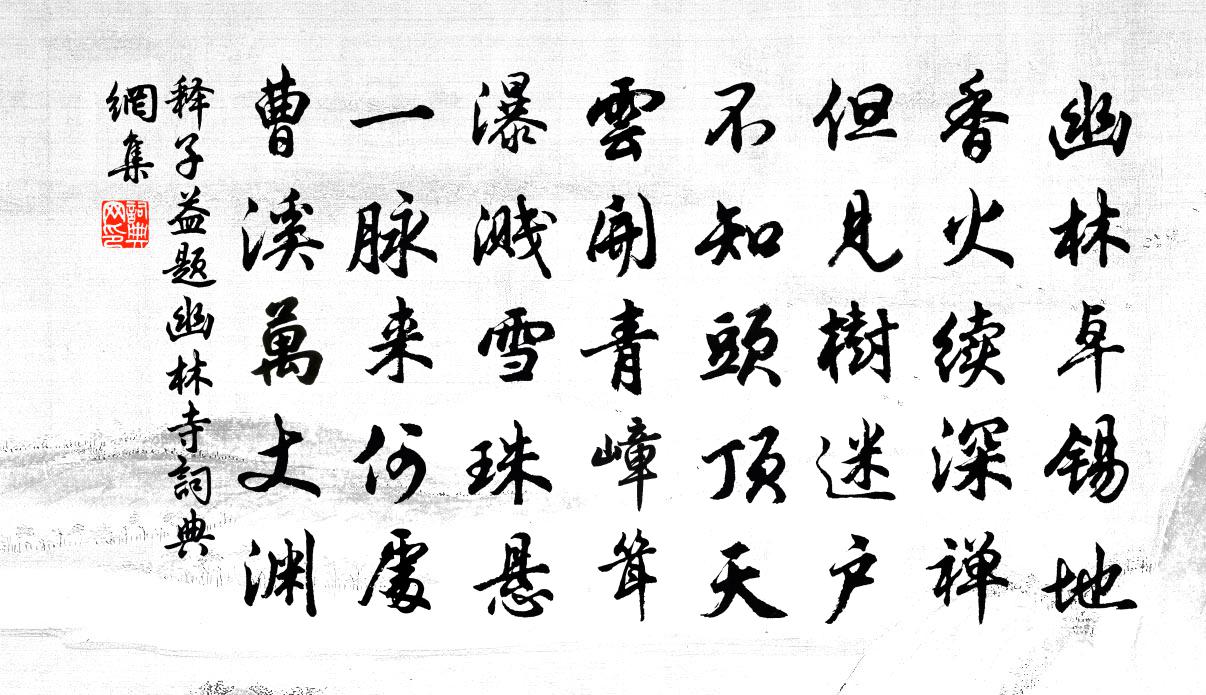 幽林卓锡地
香火续深禅
但見樹迷户
不知頭顶天
雲開青嶂耸
瀑溅雪珠悬
一脉来何處
曹溪萬丈渊
释子益题幽林寺詞典
網集
詞典
网印